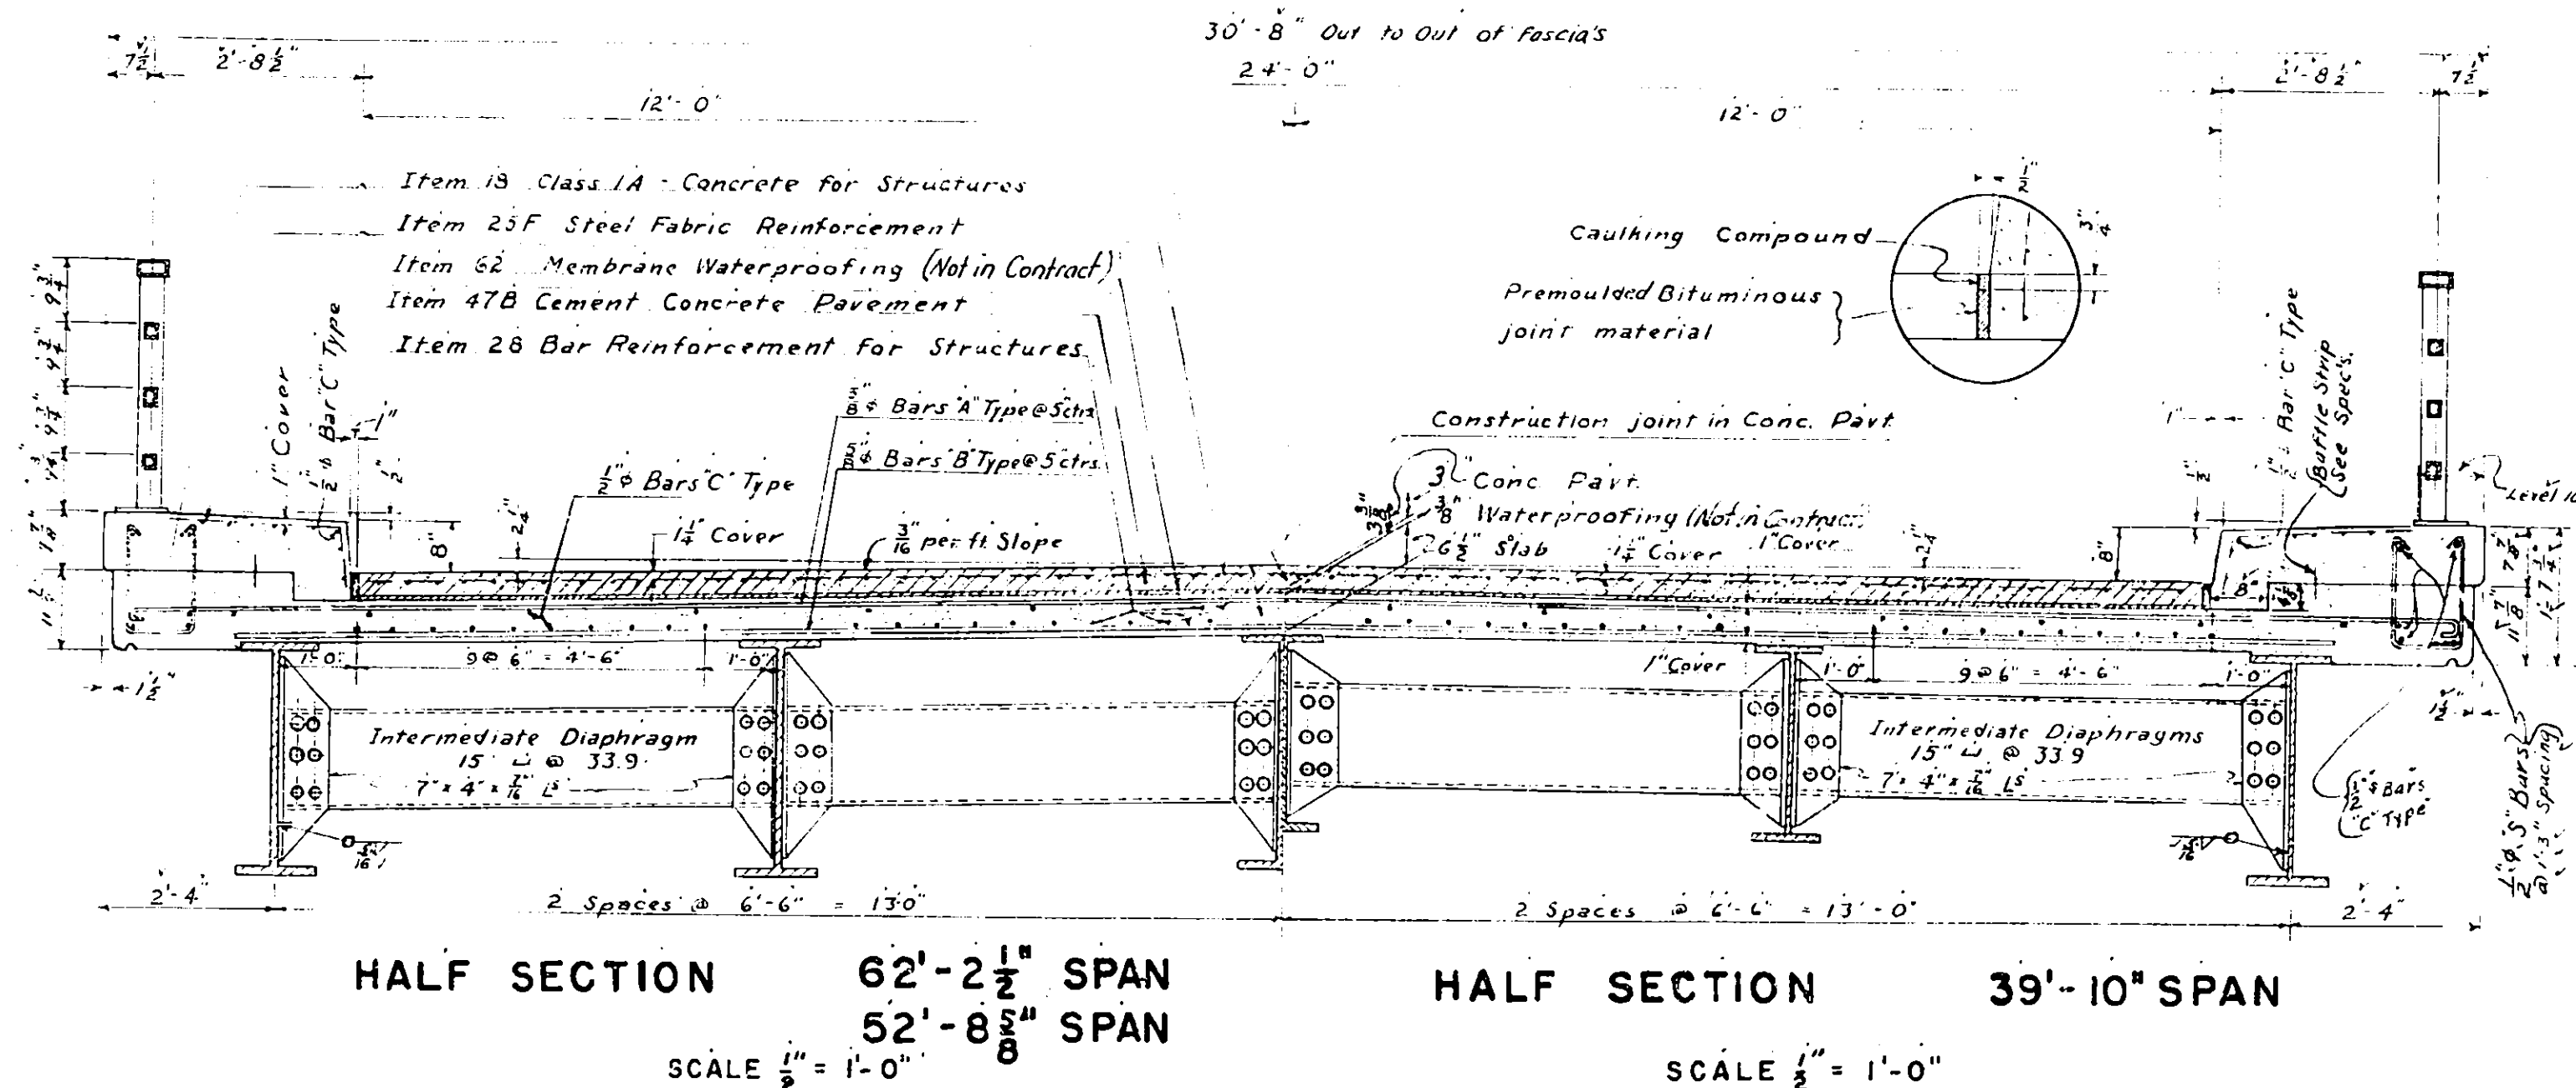 30'-8" Out to Out of fascia's
7 1/2" 2'-8 1/2" 24'-0" 2'-8 1/2" 7 1/2"
12'-0" 12'-0"
Item 18 Class 1A - Concrete for Structures
Item 25F Steel Fabric Reinforcement
Item 62 Membrane Waterproofing (Not in Contract)
Item 47B Cement Concrete Pavement
Item 28 Bar Reinforcement for Structures
1/2"
3/4"
Caulking Compound
Premoulded Bituminous
joint material
9 3/4" 9 3/4" 9 3/4" 9 3/4"
7 7/8"
1" Cover
1/2" ϕ Bar "C" Type
1"
1/2"
5/8" ϕ Bars "A" Type @ 5" ctrs
5/8" ϕ Bars "B" Type @ 5" ctrs.
1/2" ϕ Bars "C" Type
2 1/4"
8"
1 1/4" Cover
3/16" per ft. Slope
Construction joint in Conc. Pavt.
3" Conc Pavt.
3/8" Waterproofing (Not in Contract)
6 1/2" Slab
1 1/4" Cover
1" Cover
2 1/4"
1"
1/2"
1/2" ϕ Bar "C" Type
Baffle Strip
See Spec's.
Level
8"
7 7/8"
8"
11 7/8"
1'-7 3/4"
1'-0" 9 @ 6" = 4'-6" 1'-0"
1" Cover
1'-0" 9 @ 6" = 4'-6" 1'-0"
1 1/2"
1 1/2"
Intermediate Diaphragm
15" ⊔ @ 33.9
7" x 4" x 7/16" Ls
Intermediate Diaphragms
15" ⊔ @ 33.9
7" x 4" x 7/16" Ls
5/16
5/16
1/2" ϕ Bars
"C" Type
1/2" ϕ "S" Bars
@ 1'-3" Spacing
2'-4" 2 Spaces @ 6'-6" = 13'0" 2 Spaces @ 6'-6" = 13'-0" 2'-4"
HALF SECTION 62'-2 1/2" SPAN
52'-8 5/8" SPAN
SCALE 1/2" = 1'-0"
HALF SECTION 39'-10" SPAN
SCALE 1/2" = 1'-0"